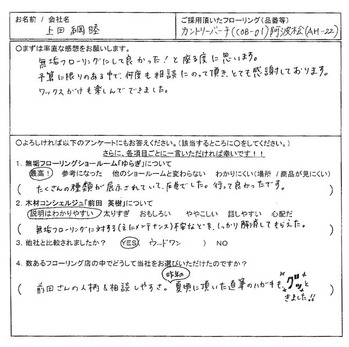 お名前 / 会社名
上田綱睦
ご採用頂いたフローリング(品番等)
カントリーバーチ(COB-01) 阿波松(AH-22)
○まずは率直な感想をお願いします。
無垢フローリングにして良かった!と座る度に思います。
予算に限りのある中で、何度も相談にのって頂き、とても感謝しております。
ワックスがけも楽しんでできました。
○よろしければ以下のアンケートにもお答えください。(該当するところに○をしてください。)
さらに、各項目ごとに一言いただければ幸いです!!
1. 無垢フローリングショールーム「ゆらぎ」について
最高! 参考になった 他のショールームと変わらない わかりにくい(場所 / 商品が見にくい)
たくさんの種類が展示されていて、圧巻でした。行って良かったです。
2. 木材コンシェルジュ「前田 英樹」について
説明はわかりやすい 太りすぎ おもしろい ややこしい 話しやすい 心配だ
無垢フローリングに対する(主にメンテナンス)不安などを、しっかり解消してもらえた。
3. 他社と比較されましたか? ( YES ウッドワン ) NO
4. 数あるフローリング店の中でどうして当社をお選びいただけたのですか?
昨年の
前田さんの人柄&相談しやすさ。夏頃に頂いた直筆のハガキも"グッ"と
きました!!